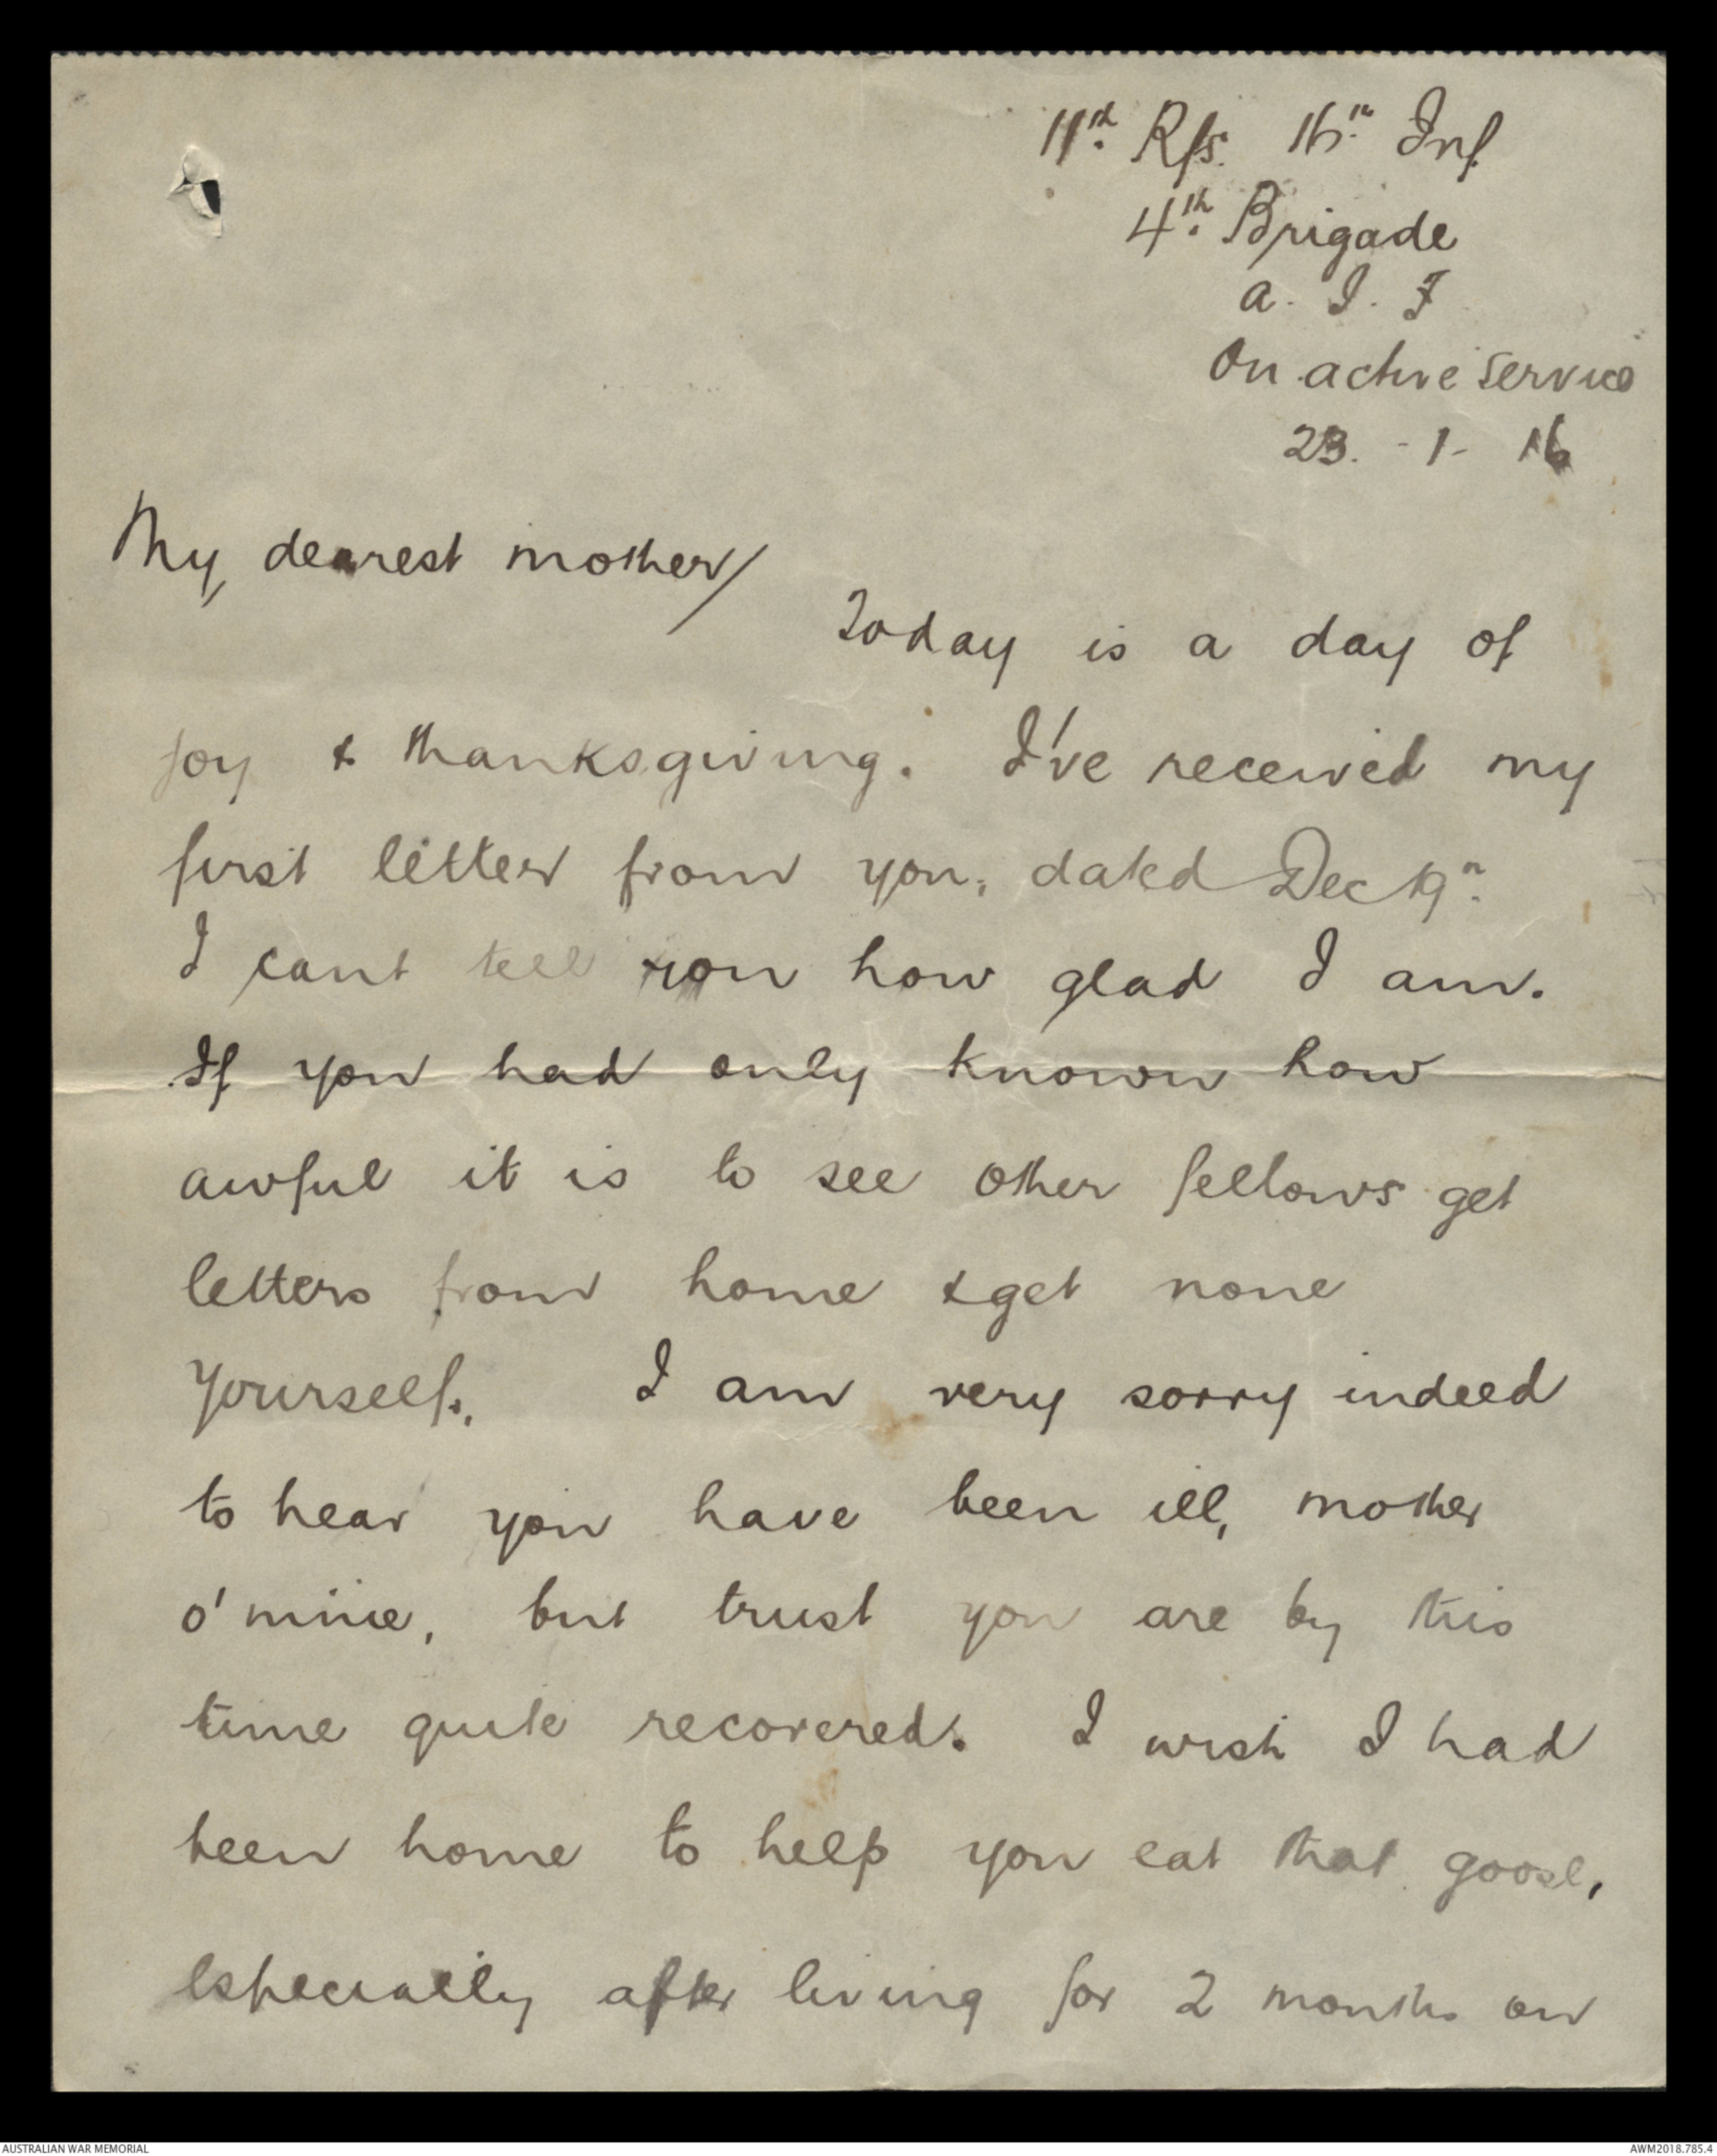 11th. Rfs. 16th. Inf
4th. Brigade
A. I. F
On active service
23. - 1 - 16
My dearest mother/
Today is a day of
joy & thanksgiving. I've received my
first letter from you, dated Dec 19th.
I cant tell you how glad I am.
If you had only known how
awful it is to see other fellows get
letters from home & get none
yourself. I am very sorry indeed
to hear you have been ill, mother
o' mine, but trust you are by this
time quite recovered. I wish I had
been home to help you eat that goose,
especially after living for 2 months on
AUSTRALIAN WAR MEMORIAL
AWM2018.785.4